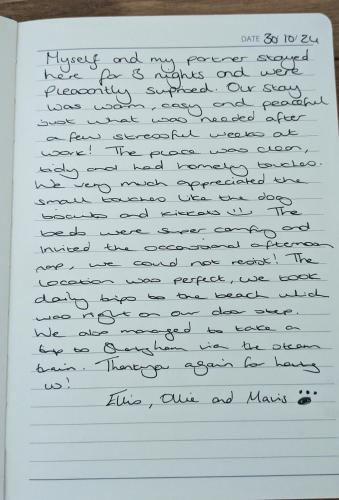 DATE 30/10/24
Myself and my partner stayed
here for 3 nights and were
pleasantly suprised. Our stay
was warm, easy and peaceful
just what was needed after
a few stressful weeks at
work! The place was clean,
tidy and had homely touches.
We very much appreciated the
small touches like the dog
biscuits and kitkats :) The
beds were super comfy and
invited the occasional afternoon
nap, we could not resist! The
location was perfect, we took
daily trips to the beach which
was right on our door step.
We also managed to take a
trip to via the steam
train. Thankyou again for having
us!
Ellis, Ollie and Mavis